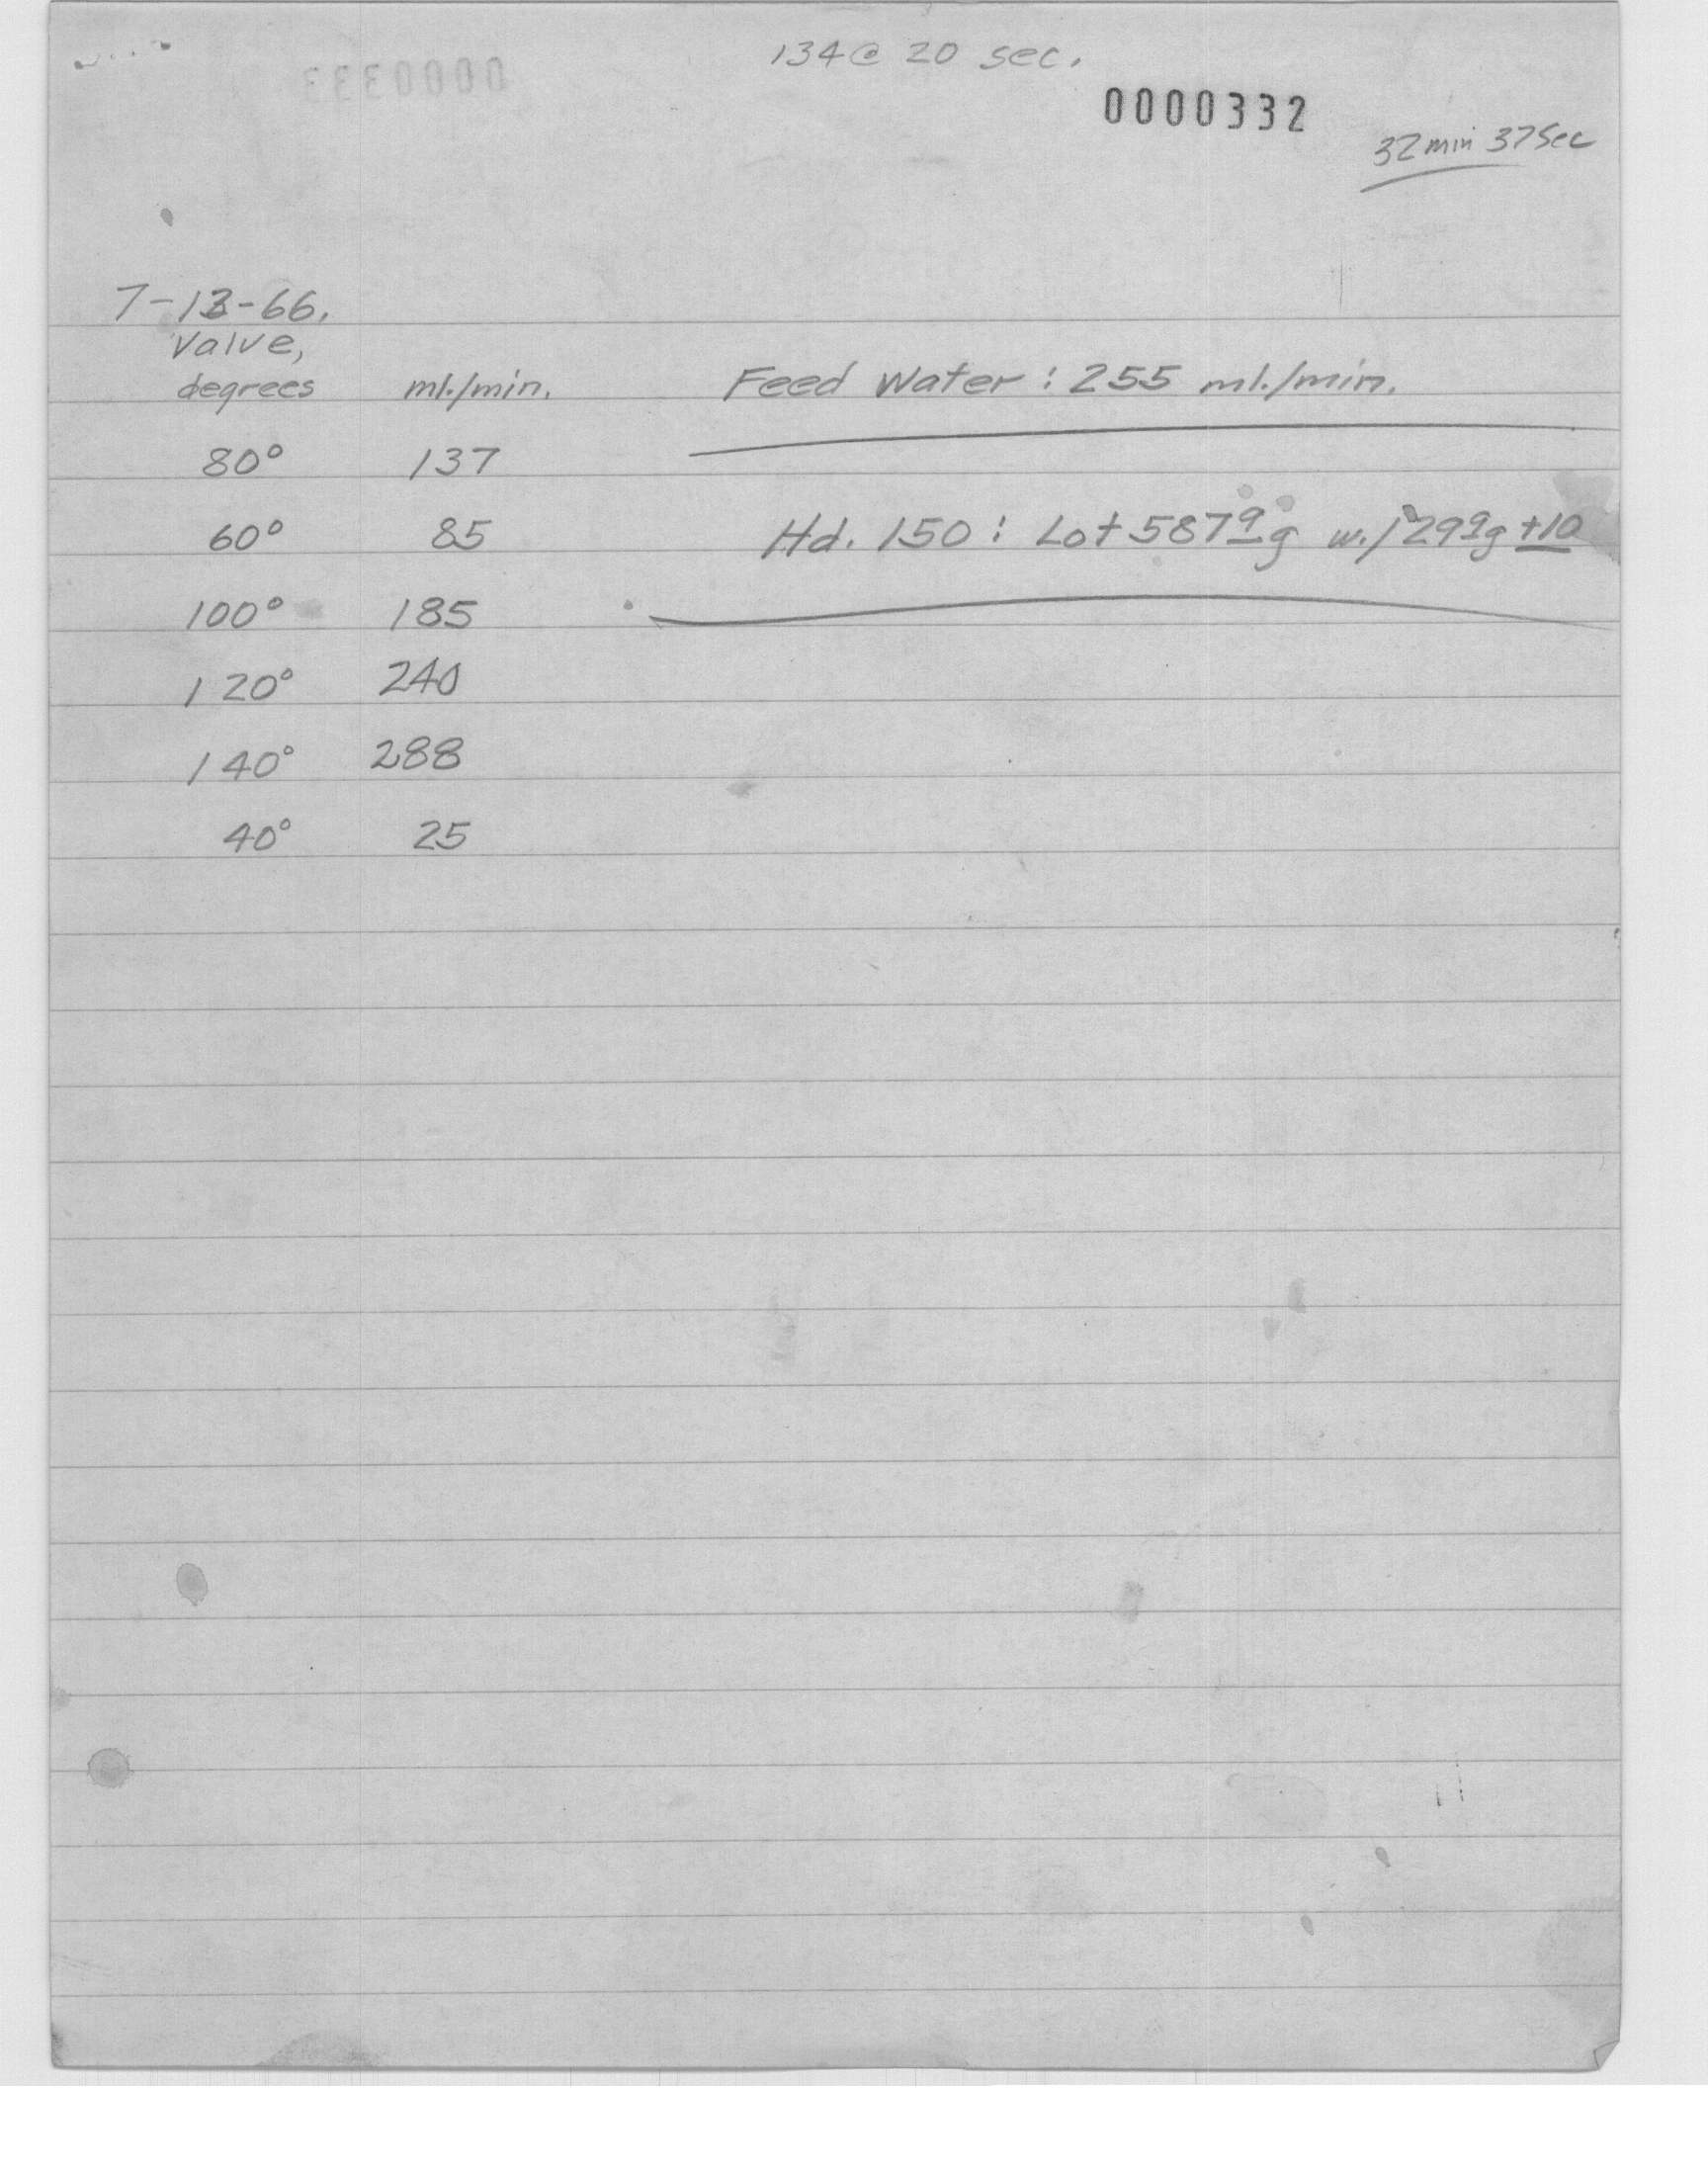 134 @ 20 sec.
0000332
32 min 37 Sec
7-13-66.
Valve,
degrees ml./min. Feed Water: 255 ml./min.
80° 137
60° 85
Hd. 150: Lot 5879g w./299g +10
100° 185
120° 240
140° 288
40° 25